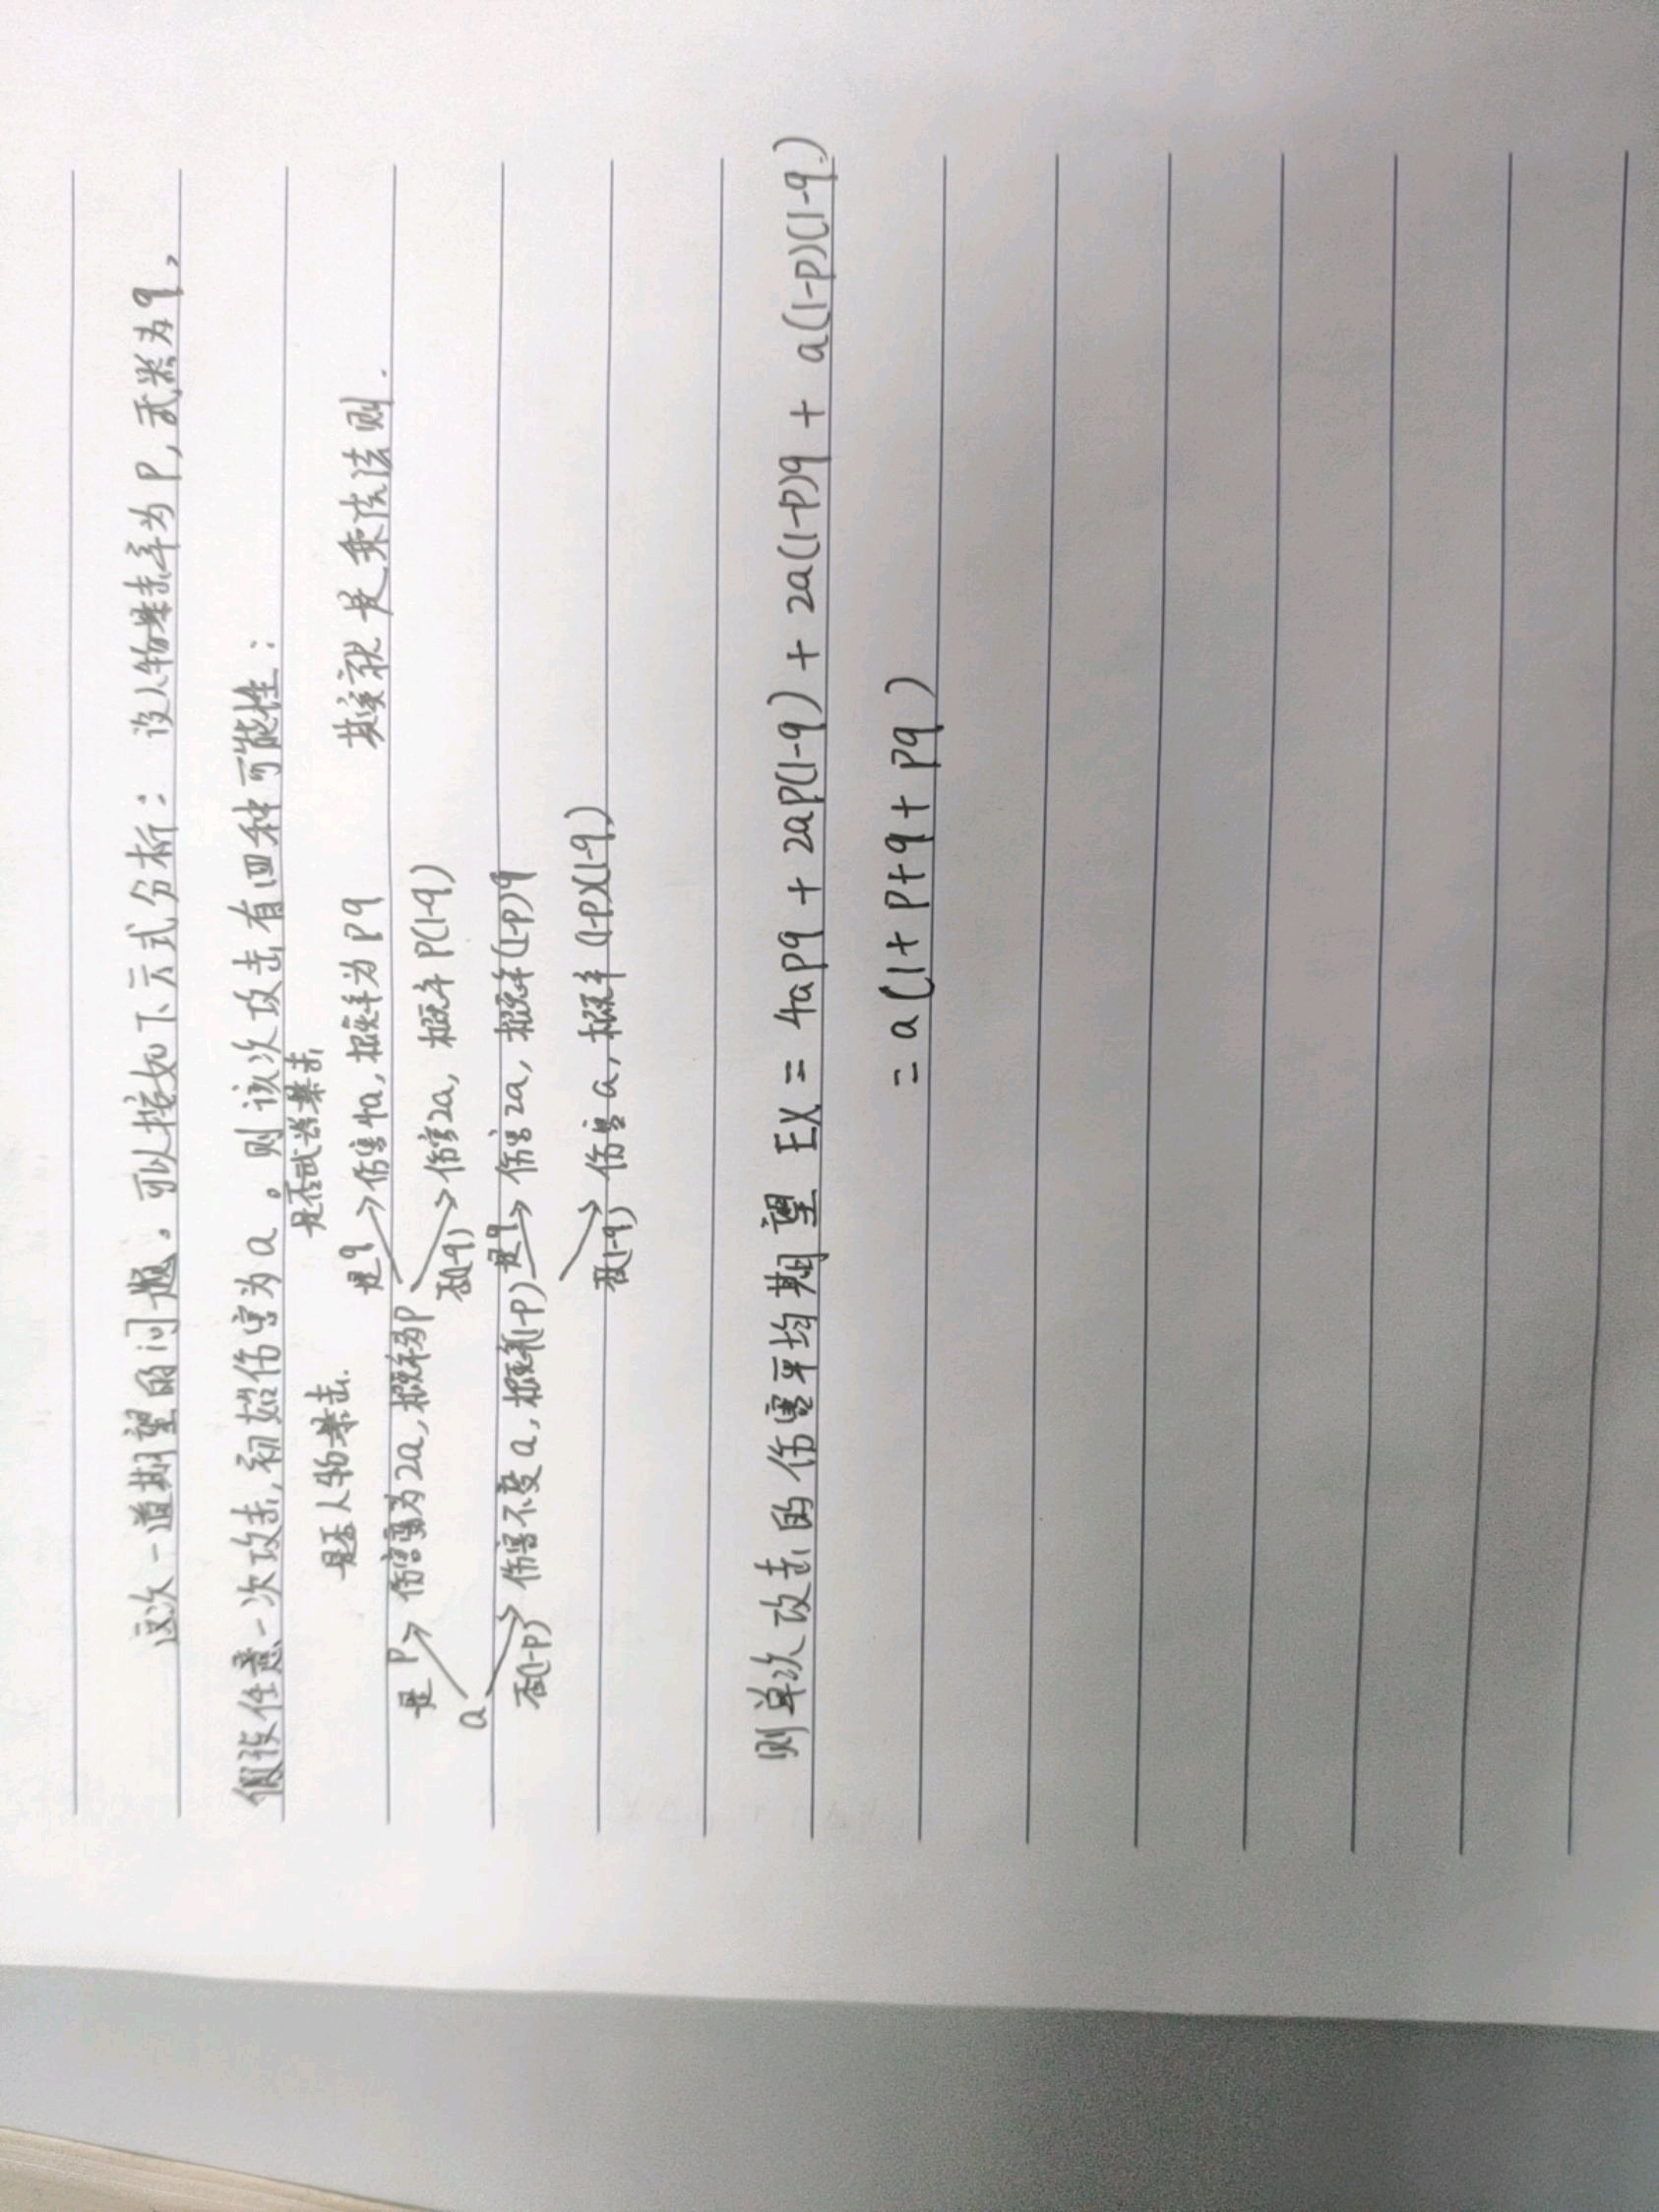 这次一道期望的问题。可以按如下方式分析：设人物暴击率为P,武器为q,
假设任意一次攻击,初始伤害为a。则该次攻击有四种可能性：
是否人物暴击. 是否武器暴击
是q 伤害4a,概率为Pq 其实就是乘法法则.
是P 伤害变为2a,概率为P
否(1-q) 伤害2a,概率P(1-q)
a
否(1-P) 伤害不变a,概率(1-P) 是q 伤害2a,概率(1-P)q
否(1-q) 伤害a,概率(1-P)(1-q)
则单次攻击的伤害平均期望 EX = 4apq + 2ap(1-q) + 2a(1-P)q + a(1-P)(1-q)
= a(1+P+q+Pq)